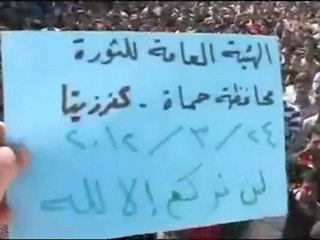 الهيئة العامة للثورة
محافظة حماة - كفرزيتا
٢٠١٢/٣/٢٤
لن نركع إلا لله